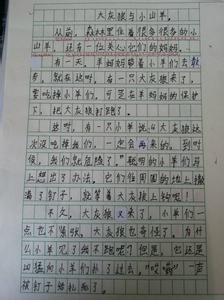 大灰狼与小山羊。
从前，森林里住着很多很多的小
山羊，还有一位关心它们的妈妈。
有一天，羊妈妈带着小羊们去散
步，就在这时，有一只大灰狼来了，
要吃掉小羊们，可是在羊妈妈的保护
下，把大灰狼打跑了。
这时，有一只小羊说：“大灰狼这
次没吃掉我们，一定会再来的，到时
候，我们就危险了。”聪明的小羊们马
上想出了办法，它们在周围的地上撒
满了钉子，就等着大灰狼上钩呢！
不久，大灰狼又来了，小羊们一
点也不紧张。大灰狼也奇怪了，为什
么小羊见了我不跑呢？但是，它还是
凶猛向小羊们扑了过去，“哎哟”一声
被钉子给扎死了。